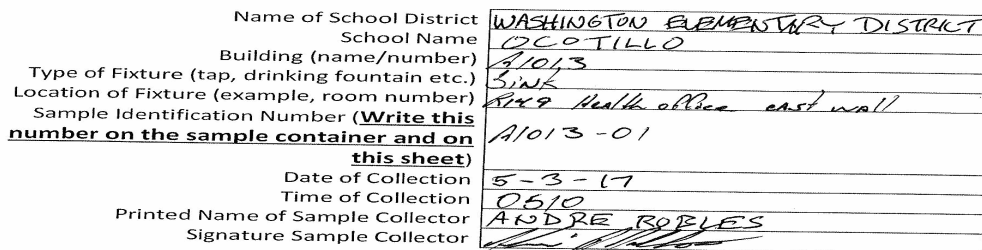 Name of School District WASHINGTON ELEMENTARY DISTRICT
School Name OCOTILLO
Building (name/number) A1013
Type of Fixture (tap, drinking fountain etc.) Sink
Location of Fixture (example, room number) Health office east wall
Sample Identification Number (Write this
number on the sample container and on A1013-01
this sheet)
Date of Collection 5-3-17
Time of Collection 0510
Printed Name of Sample Collector ANDRE ROBLES
Signature Sample Collector